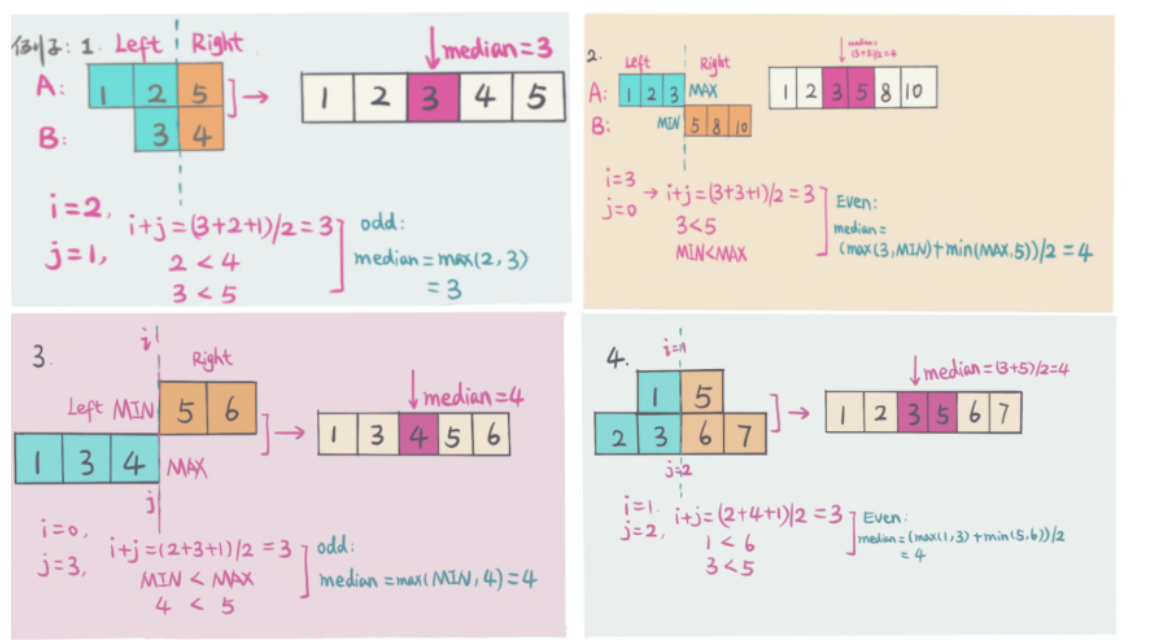 例子: 1. Left Right
median=3
A: 1 2 5
1 2 3 4 5
B: 3 4
i=2,
j=1,
i+j=(3+2+1)/2=3
2<4
3<5
odd:
median=max(2,3)
=3
2.
Left Right
median=
(3+5)/2=4
A: 1 2 3 MAX
1 2 3 5 8 10
B: MIN 5 8 10
i=3
j=0
→ i+j=(3+3+1)/2=3
3<5
MIN<MAX
Even:
median=
(max(3,MIN)+min(MAX,5))/2=4
3.
i
Right
Left MIN 5 6
1 3 4 MAX
j
median=4
1 3 4 5 6
i=0,
j=3,
i+j=(2+3+1)/2=3
MIN < MAX
4 < 5
odd:
median=max(MIN,4)=4
4.
i=1
1 5
2 3 6 7
j=2
median=(3+5)/2=4
1 2 3 5 6 7
i=1.
j=2,
i+j=(2+4+1)/2=3
1<6
3<5
Even:
median=(max(1,3)+min(5,6))/2
=4